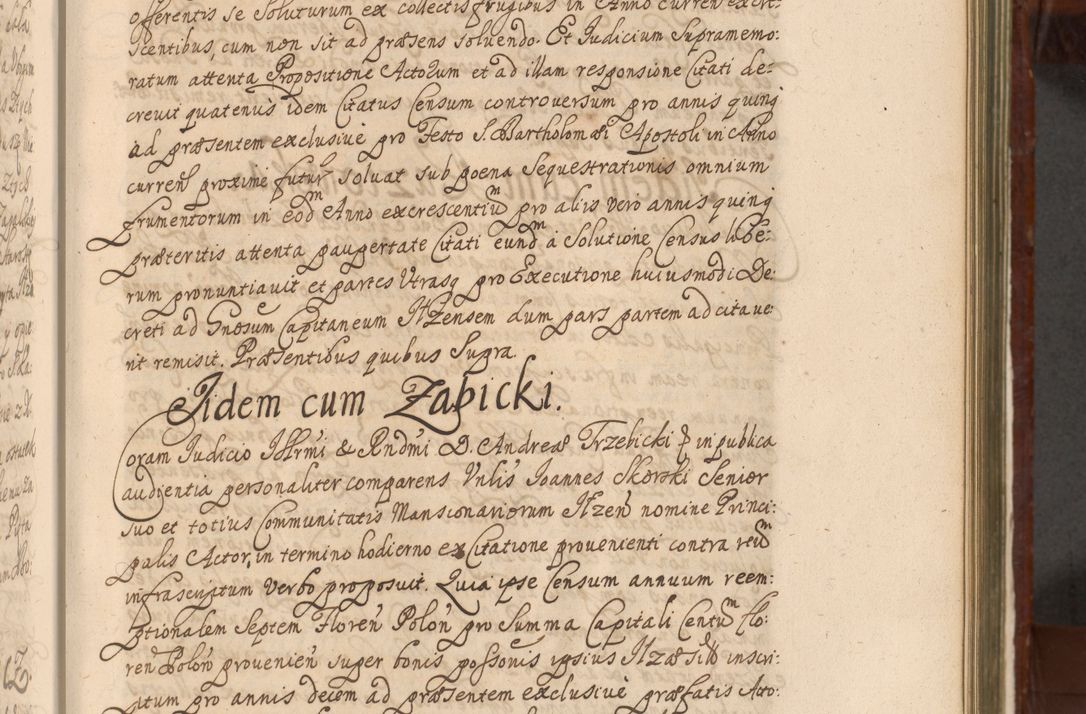 offerentis se soluturum ex collectis frugibus in Anno curren excre-
scentibus, cum non sit ad præsens soluendo. Et Iudicium Supramemo:
ratum attenta Propositione Actorum et ad illam responsione Citati de:
creuit quatenus idem Citatus Censum controversum pro annis quinq
ad præsentem exclusive pro Festo S. Bartholomæi Apostoli in Anno
curren proxime futur soluat sub poena Sequestrationis omnium
frumentorum in eodm Anno excrescentium pro aliis vero annis quinq
præteritis attenta paupertate Citati eundm à Solutione Census libe:
rum pronuntiauit et partes Utrasq pro Executione huiusmodi De:
creti ad Gnesum Capitaneum Ilzensem dum pars partem adcitaue:
rit remisit. Præsentibus quibus Supra.
Iidem cum Zabicki.
Coram Iudicio Illrmi & Rndmi D. Andreæ Trzebicki in publica
audientia personaliter comparens Vnlis Ioannes Skorski Senior
suo et totius Communitatis Mansconariorum Ilzen nomine Princi:
palis Actor, in termino hodierno ex Citatione provenienti contra reum
infrascriptum verbo proposuit. Quia ipse Censum annuum reem:
ptionalem Septem Floren Polon pro Summa Capitali Centum flo:
ren Polon provenien super bonis possonis ipsius Ilzæ sitis inscri:
ptum pro annis decem ad præsentem exclusive præfatis Acto: